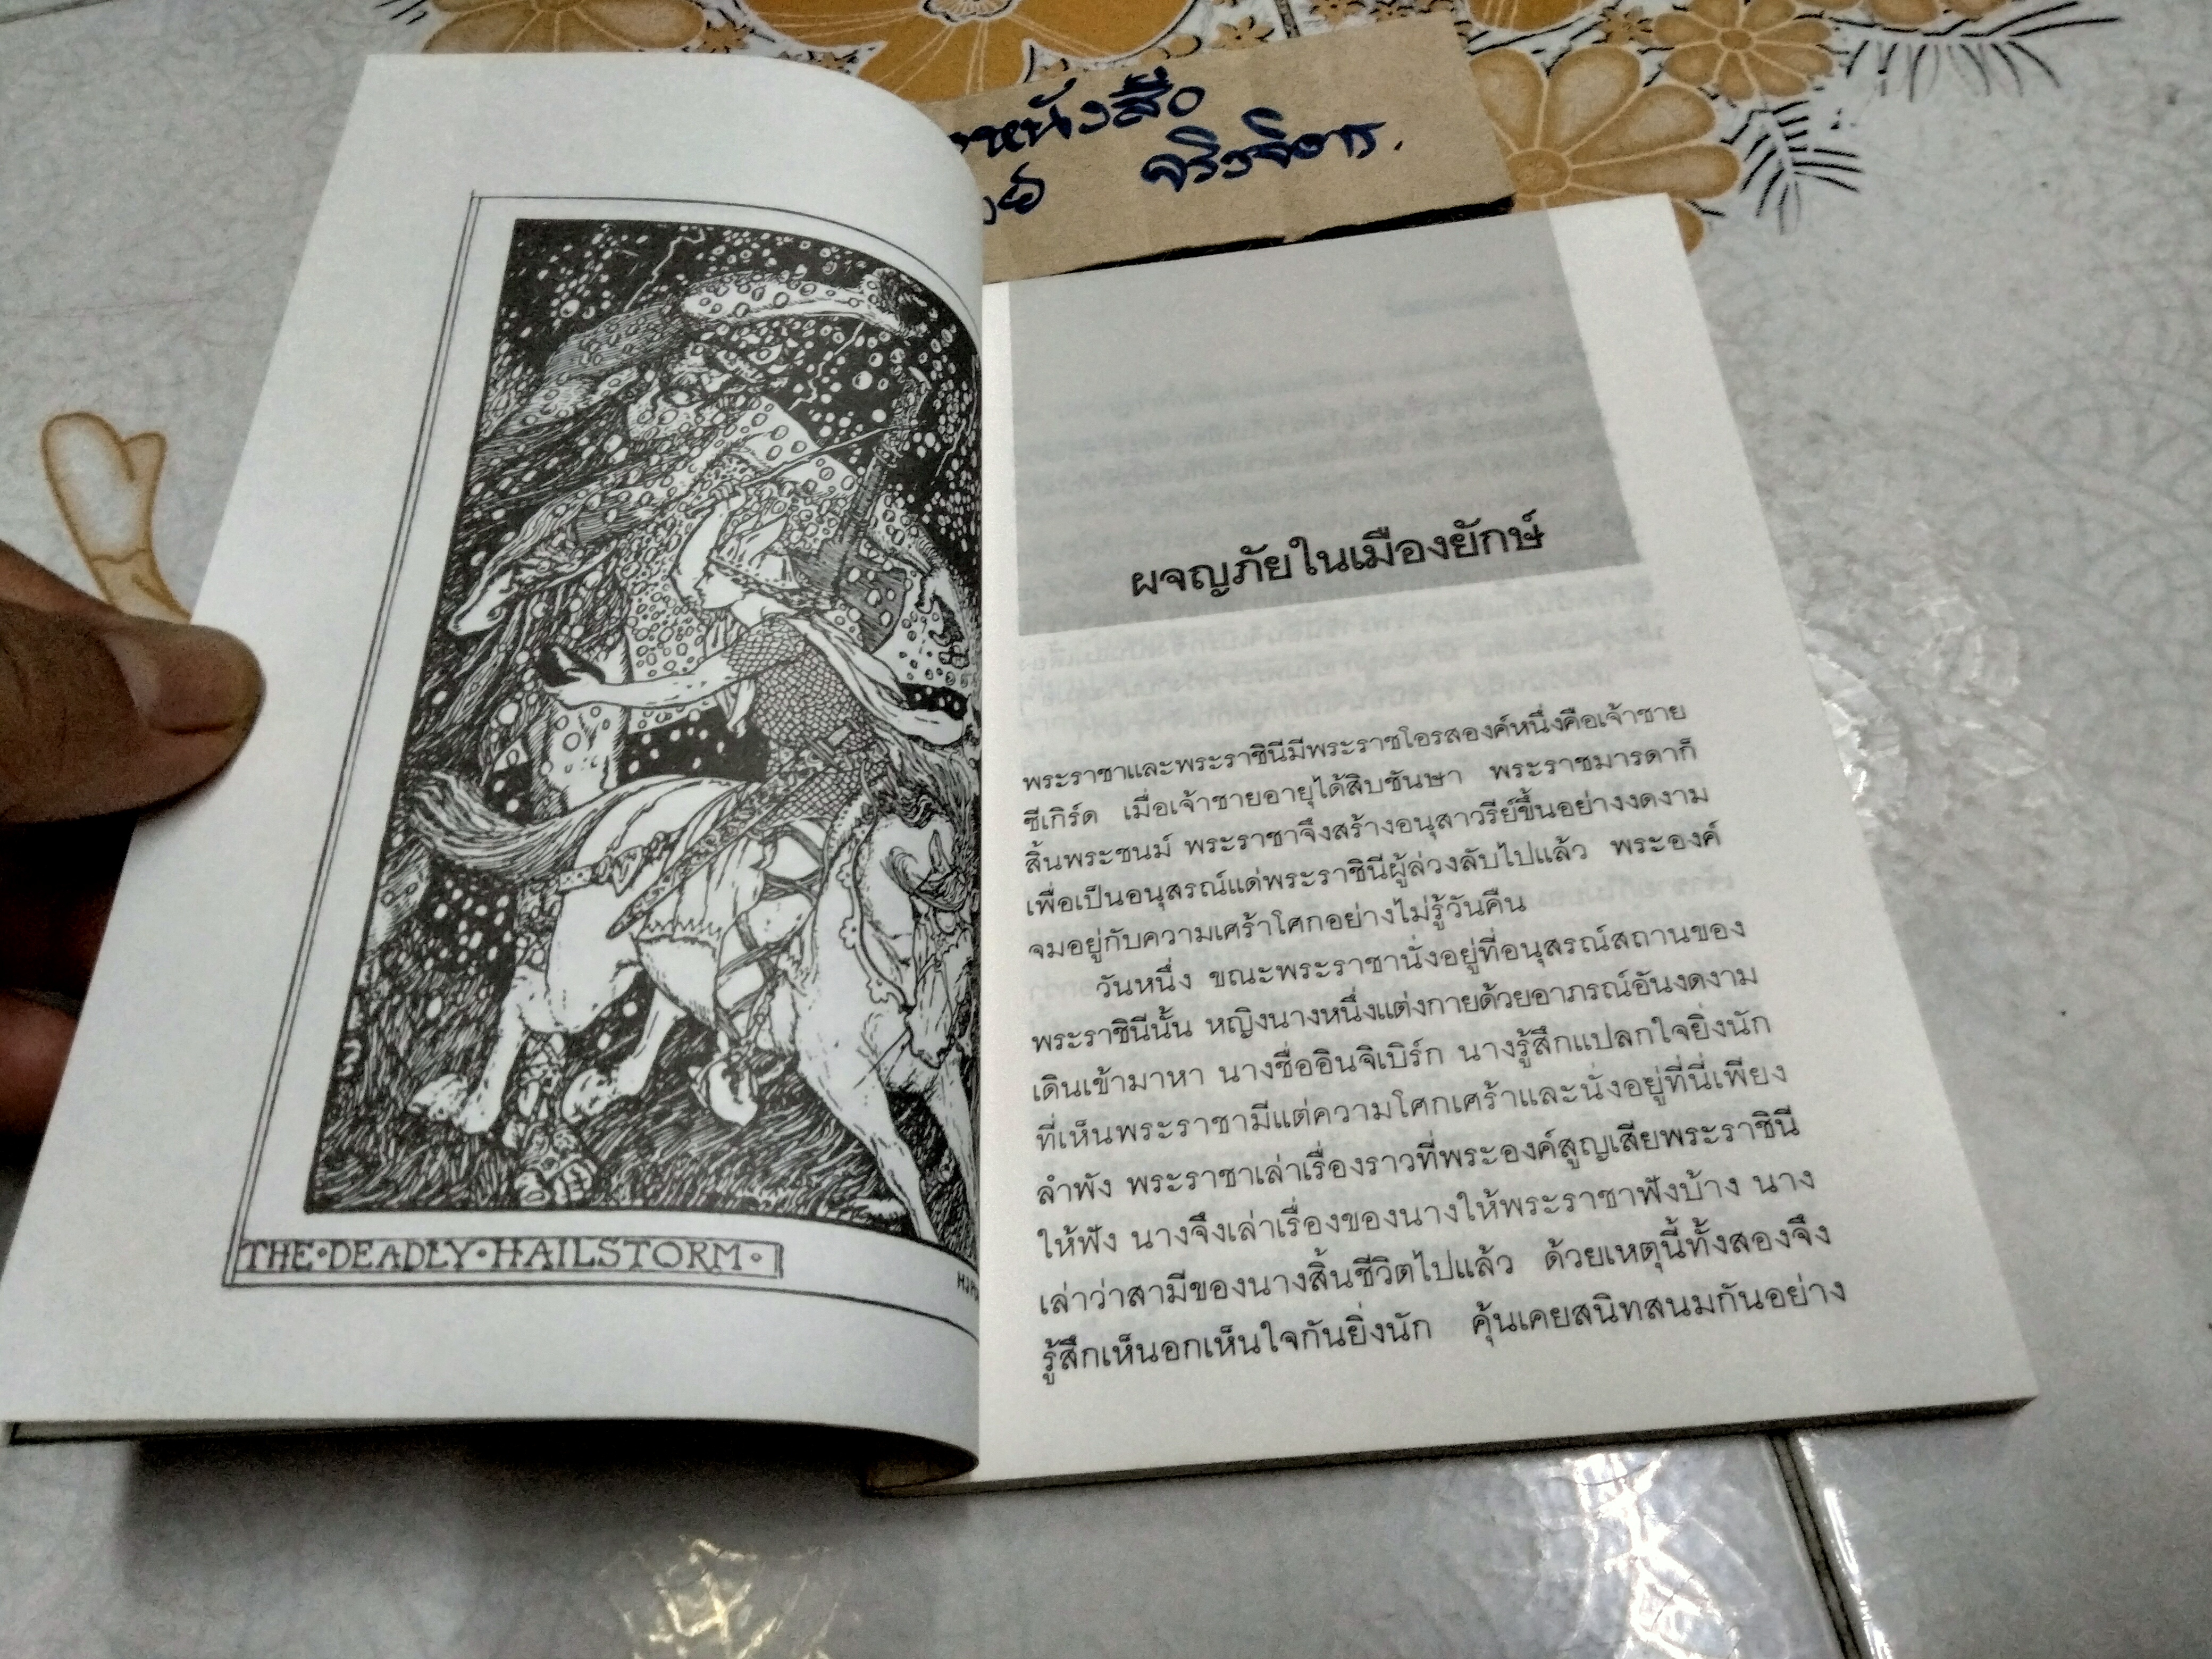 หนังสือ
จริงจิตร.
THE·DEADLY·HAILSTORM·
ผจญภัยในเมืองยักษ์
พระราชาและพระราชินีมีพระราชโอรสองค์หนึ่งคือเจ้าชาย
ซีเกิร์ด เมื่อเจ้าชายอายุได้สิบชันษา พระราชมารดาก็
สิ้นพระชนม์ พระราชาจึงสร้างอนุสาวรีย์ขึ้นอย่างงดงาม
เพื่อเป็นอนุสรณ์แด่พระราชินีผู้ล่วงลับไปแล้ว พระองค์
จมอยู่กับความเศร้าโศกอย่างไม่รู้วันคืน
วันหนึ่ง ขณะพระราชานั่งอยู่ที่อนุสรณ์สถานของ
พระราชินีนั้น หญิงนางหนึ่งแต่งกายด้วยอาภรณ์อันงดงาม
เดินเข้ามาหา นางชื่ออินจิเบิร์ก นางรู้สึกแปลกใจยิ่งนัก
ที่เห็นพระราชามีแต่ความโศกเศร้าและนั่งอยู่ที่นี่เพียง
ลำพัง พระราชาเล่าเรื่องราวที่พระองค์สูญเสียพระราชินี
ให้ฟัง นางจึงเล่าเรื่องของนางให้พระราชาฟังบ้าง นาง
เล่าว่าสามีของนางสิ้นชีวิตไปแล้ว ด้วยเหตุนี้ทั้งสองจึง
รู้สึกเห็นอกเห็นใจกันยิ่งนัก คุ้นเคยสนิทสนมกันอย่าง